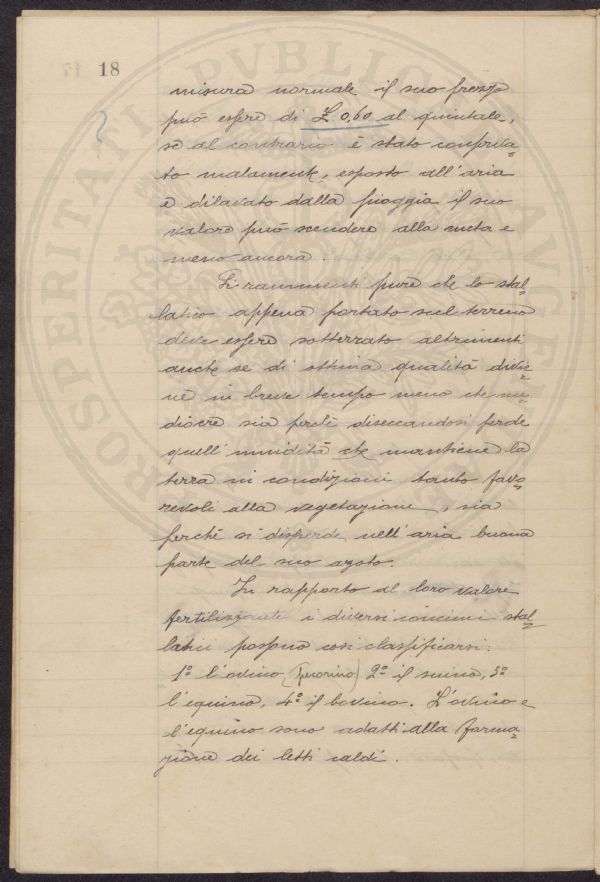 18
misura normale il suo prezzo
può essere di £ 0,60 al quintale,
se al contrario è stato conserva=
to malamente, esposto all'aria
e dilavato dalla pioggia il suo
valore può scendere alla metà e
meno ancora.
Si rammenti pure che lo stal=
latico appena portato sul terreno
deve essere sotterrato altrimenti
anche se di ottima qualità divie=
ne in breve tempo meno che me=
diocre sia perchè disseccandosi perde
quell'umidità che mantiene la
terra in condizioni tanto favo=
revoli alla vegetazione, sia
perchè si disperde nell'aria buona
parte del suo azoto.
In rapporto al loro valore
fertilizzante i diversi concimi stal=
latici possono così classificarsi:
1º l'ovino (pecorino) 2º il suino, 3º
l'equino, 4º il bovino. L'ovino e
l'equino sono adatti alla forma=
zione dei letti caldi.
PROSPERITATI PVBLICAE AVGENDAE